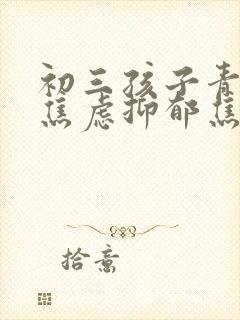 初三孩子青
焦虑抑郁焦
拾意